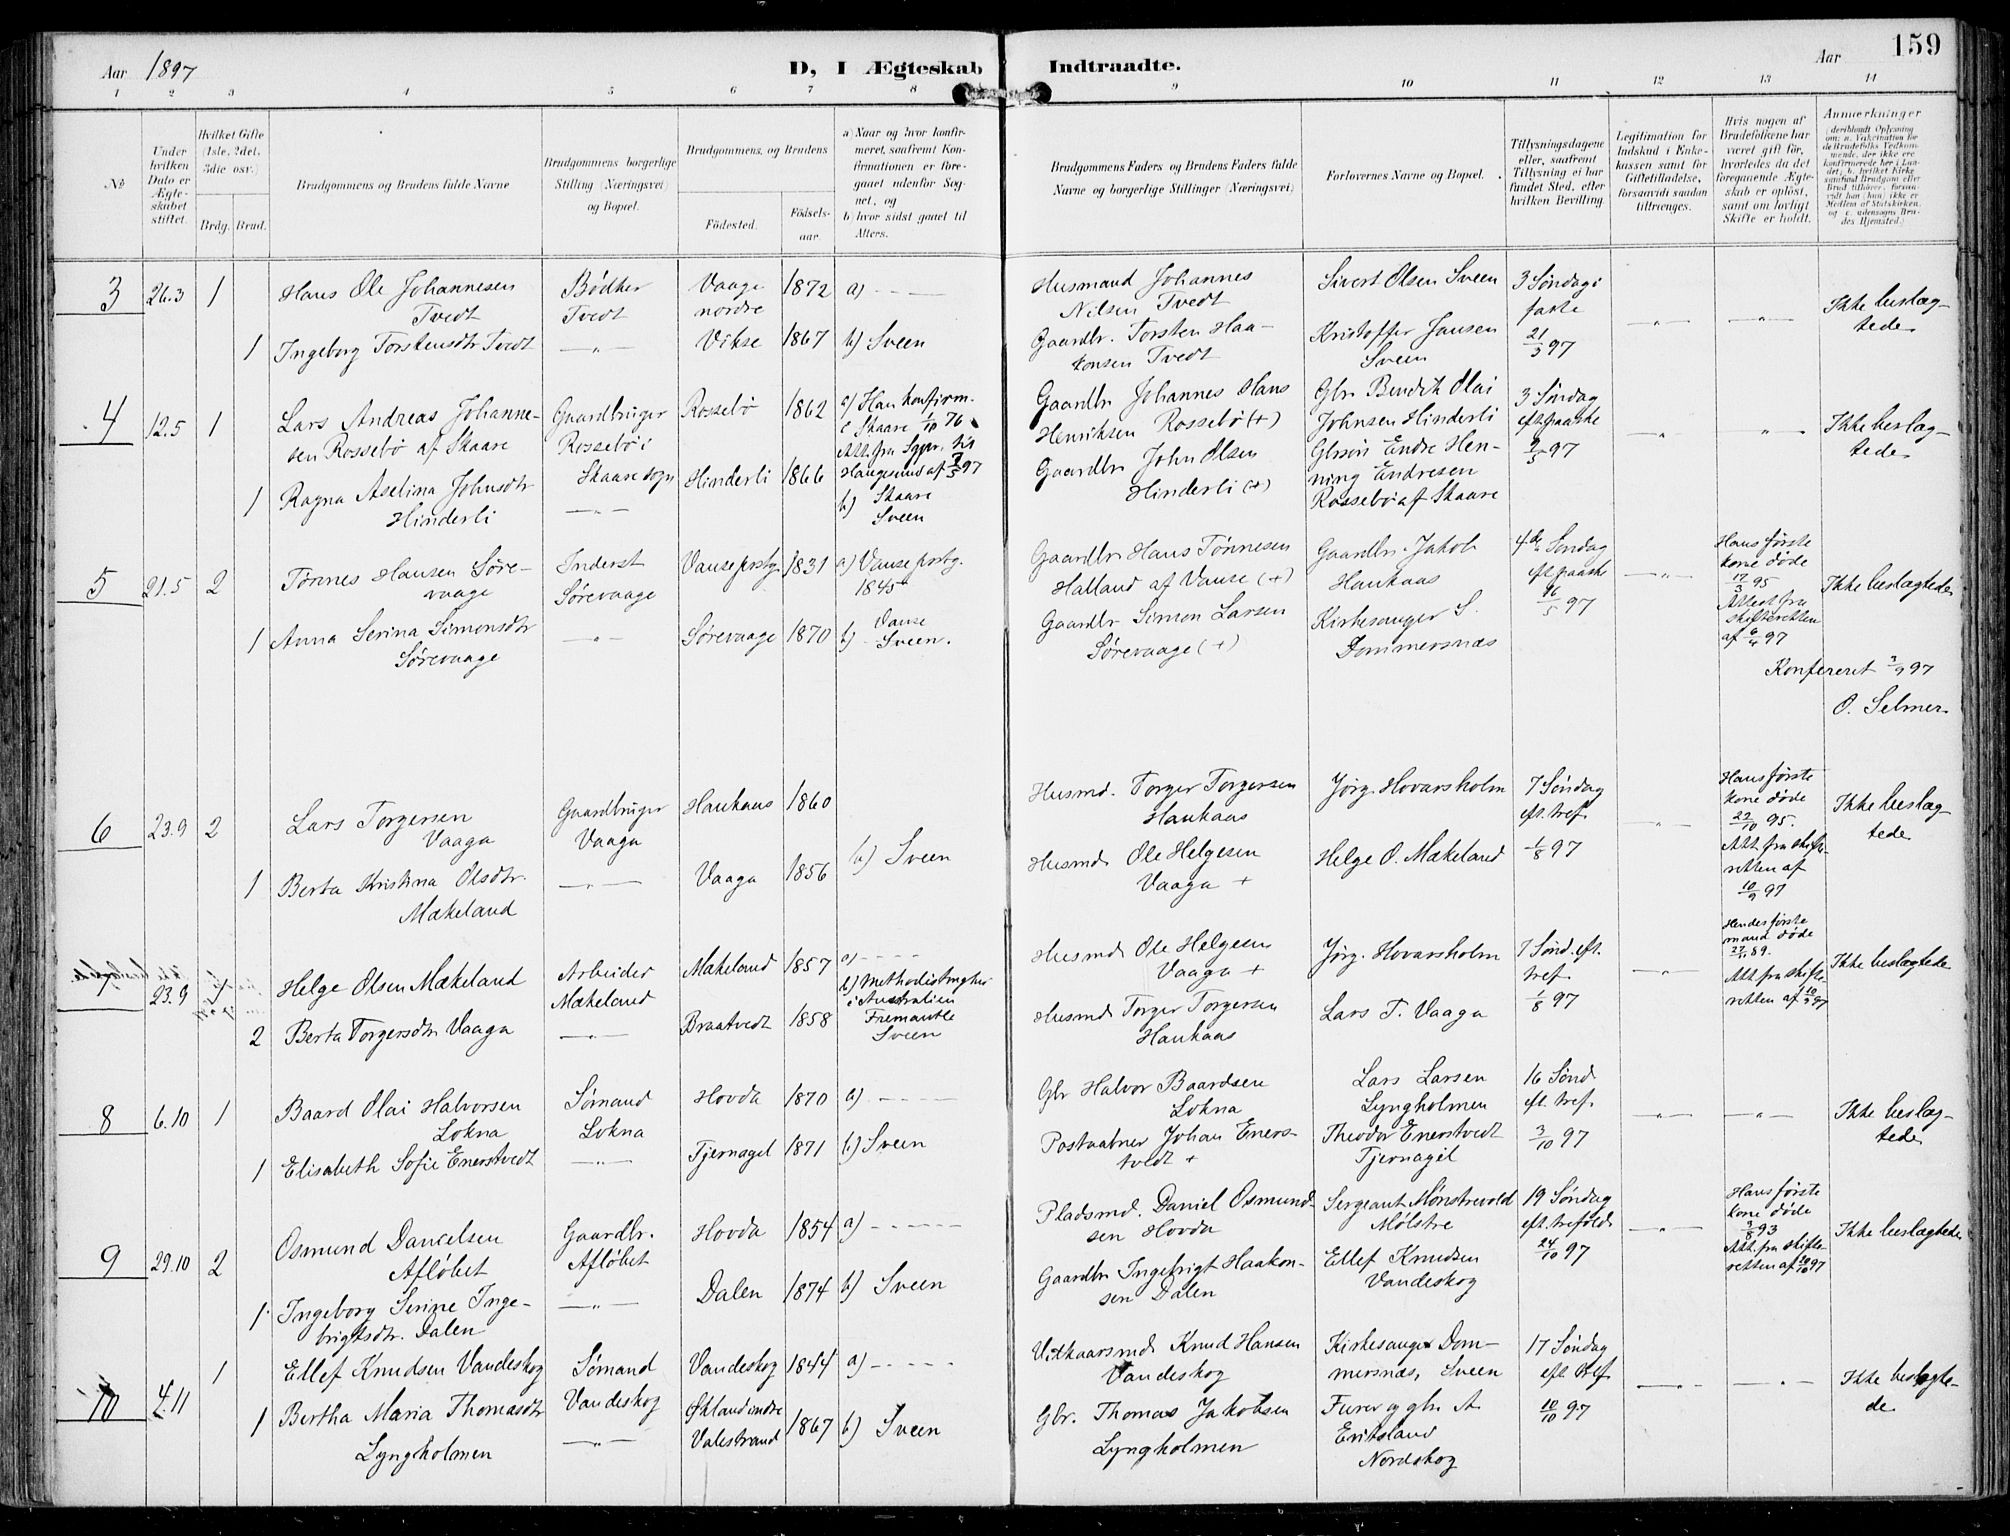 159
Aar 1897
D, I Ægteskab Indtraadte.
Aar
1 2 3 4 5 6 7 8 9 10 11 12 13 14
№
Under hvilken Dato er Ægteskabet stiftet.
Hvilket Gifte (1ste, 2det, 3die osv.)
Brdg. Brud.
Brudgommens og Brudens fulde Navne
Brudgommens borgerlige Stilling (Næringsvei) og Bopæl.
Brudgommens, og Brudens
Fødested.
Fødselsaar.
a) Naar og hvor konfirmeret, saafremt Konfirmationen er foregaaet udenfor Sognet, og
b) hvor sidst gaaet til Alters.
Brudgommens Faders og Brudens Faders fulde Navne og borgerlige Stillinger (Næringsvei)
Forlovernes Navne og Bopæl.
Tillysningsdagene eller, saafremt Tillysning ei har fundet Sted, efter hvilken Bevilling.
Legitimation for Indskud i Enkekassen samt for Giftetilladelse, forsaavidt saadan tiltrænges.
Hvis nogen af Brudefolkene har været gift før, hvorledes da det foregaaende Ægteskab er opløst, samt om lovligt Skifte er holdt.
Anmærkninger
3 26.3 1
Hans Ole Johannesen
Tvedt
Bødker
Tvedt
Vaage
nordre
1872
a) — — —
Husmand Johannes
Nilsen Tvedt
Sivert Olsen Sveen
3 Søndag i
faste
21/3 97
Ikke beslæg-
tede
1 Ingeborg Torstensdtr Tvedt
—"—
Vikse
1867
b) Sveen
Gaardbr. Torsten Haa-
konsen Tvedt
Kristoffer Jansen
Sveen
4 12.5 1
Lars Andreas Johanne-
sen Rossebø af Skaare
Gaardbruger
Rossebø i
Skaare sogn
Rossebø
1862
a) Han konfirm.
i Skaare 1/10 76
Att. fra Sgpr. til
Haugesund af 7/5 97
Gaardbr Johannes Hans
Henriksen Rossebø (+)
Gbr Bendik Olai
Johnsen Hinderli
3 Søndag
eft. paaske
9/5 97
Ikke beslæg-
tede
1 Ragna Aselina Johnsdtr
Hinderli
—"—
Hinderli
1866
b) Skaare
Sveen
Gaardbr John Olsen
Hinderli (+)
Gbrsøn Endre Hen-
ning Endresen
Rossebø af Skaare
5 21.5 2
Tønnes Hansen Søre-
vaage
Inderst
Sørevaage
Vanse prstg.
1831
a) Vanse prstg.
1845
Gaardbr Hans Tønnesen
Halland af Vanse (+)
Gaardbr. Jakob
Haukaas
4de Søndag
eft. paaske
16/5 97
Hans første
kone døde
17/3 95
Attest fra
skifteretten
af 6/4 97
Ikke beslægtede
1 Anna Serina Simonsdtr
Sørevaage
—"—
Sørevaage
1870
b) Vanse
Sveen.
Gaardbr Simon Larsen
Sørevaage (+)
Kirkesanger S.
Dommersnæs
Konfereret 7/9 97
O. Selmer
6 23.9 2
Lars Torgersen
Vaaga
Gaardbruger
Vaaga
Haukaas
1860
Husmd. Torger Torgersen
Haukaas
Jørg. Hovarsholm
7 Søndag
eft. tref.
1/8 97
Hans første
kone døde
22/10 95.
Att. fra skifte-
retten af
10/9 97
Ikke beslæg-
tede
1 Berta Kristina Olsdtr.
Mækeland
—"—
Vaaga
1856
b) Sveen
Husmd Ole Helgesen
Vaaga +
Helge O. Mækeland
7 23.9 1
Helge Olsen Mækeland
Arbeider
Mækeland
Mækeland
1857
a) — — —
b) Methodistmghed
i Australien
Fremantle
Sveen
Husmd Ole Helgesen
Vaaga +
Jørg. Hovarsholm
7 Sønd. eft.
tref.
1/8 97
Hendes første
mand døde
89.
Att. fra skifte-
retten af 10/9 97
Ikke beslægtede
2 Berta Torgersdtr Vaaga
—"—
Braatvedt
1858
Husmd Torger Torgersen
Haukaas
Lars T. Vaaga
8 6.10 1
Baard Olai Halvorsen
Lokna
Sømand
Lokna
Hovda
1870
a) — — —
Gbr Halvor Baardsen
Lokna
Lars Larsen
Lyngholmen
16 Sønd
eft. tref.
3/10 97
Ikke beslæg-
tede
1 Elisabeth Sofie Enerstvedt
—"—
Tjernagel
1871
b) Sveen
Postaabner Johan Eners-
tvedt +
Theodor Enerstvedt
Tjernagel
9 29.10 2
Osmund Danielsen
Afløbet
Gaardbr.
Afløbet
Hovda
1854
a) — — —
Pladsmd. Daniel Osmund-
sen Hovda
Sergeant Mønstrevold
Mølstre
19 Søndag
eft. trefold.
24/10 97
Hans første
kone døde
3/8 93
Att. fra skifte-
retten af 97
Ikke beslægtede
1 Ingeborg Serine Inge-
brigtsdtr. Dalen
—"—
Dalen
1874
b) Sveen
Gaardbr Ingebrigt Haakon-
sen Dalen
Ellef Knudsen
Vandeskog
10 4.11 1
Ellef Knudsen Vandeskog
Sømand
Vandeskog
Vandeskog
1844
a) — — —
Vilkaarsmd Knud Hansen
Vandeskog
Kirkesanger Dom-
mersnæs, Sveen
17 Søndag
eft. tref.
10/10 97
Ikke beslægte-
de
1 Bertha Maria Thomasdtr
Lyngholmen
—"—
Økland indre
Valestrand
1867
b) Sveen
Gbr. Thomas Jakobsen
Lyngholmen
Furer og gbr. A.
Eritsland
Nordskog